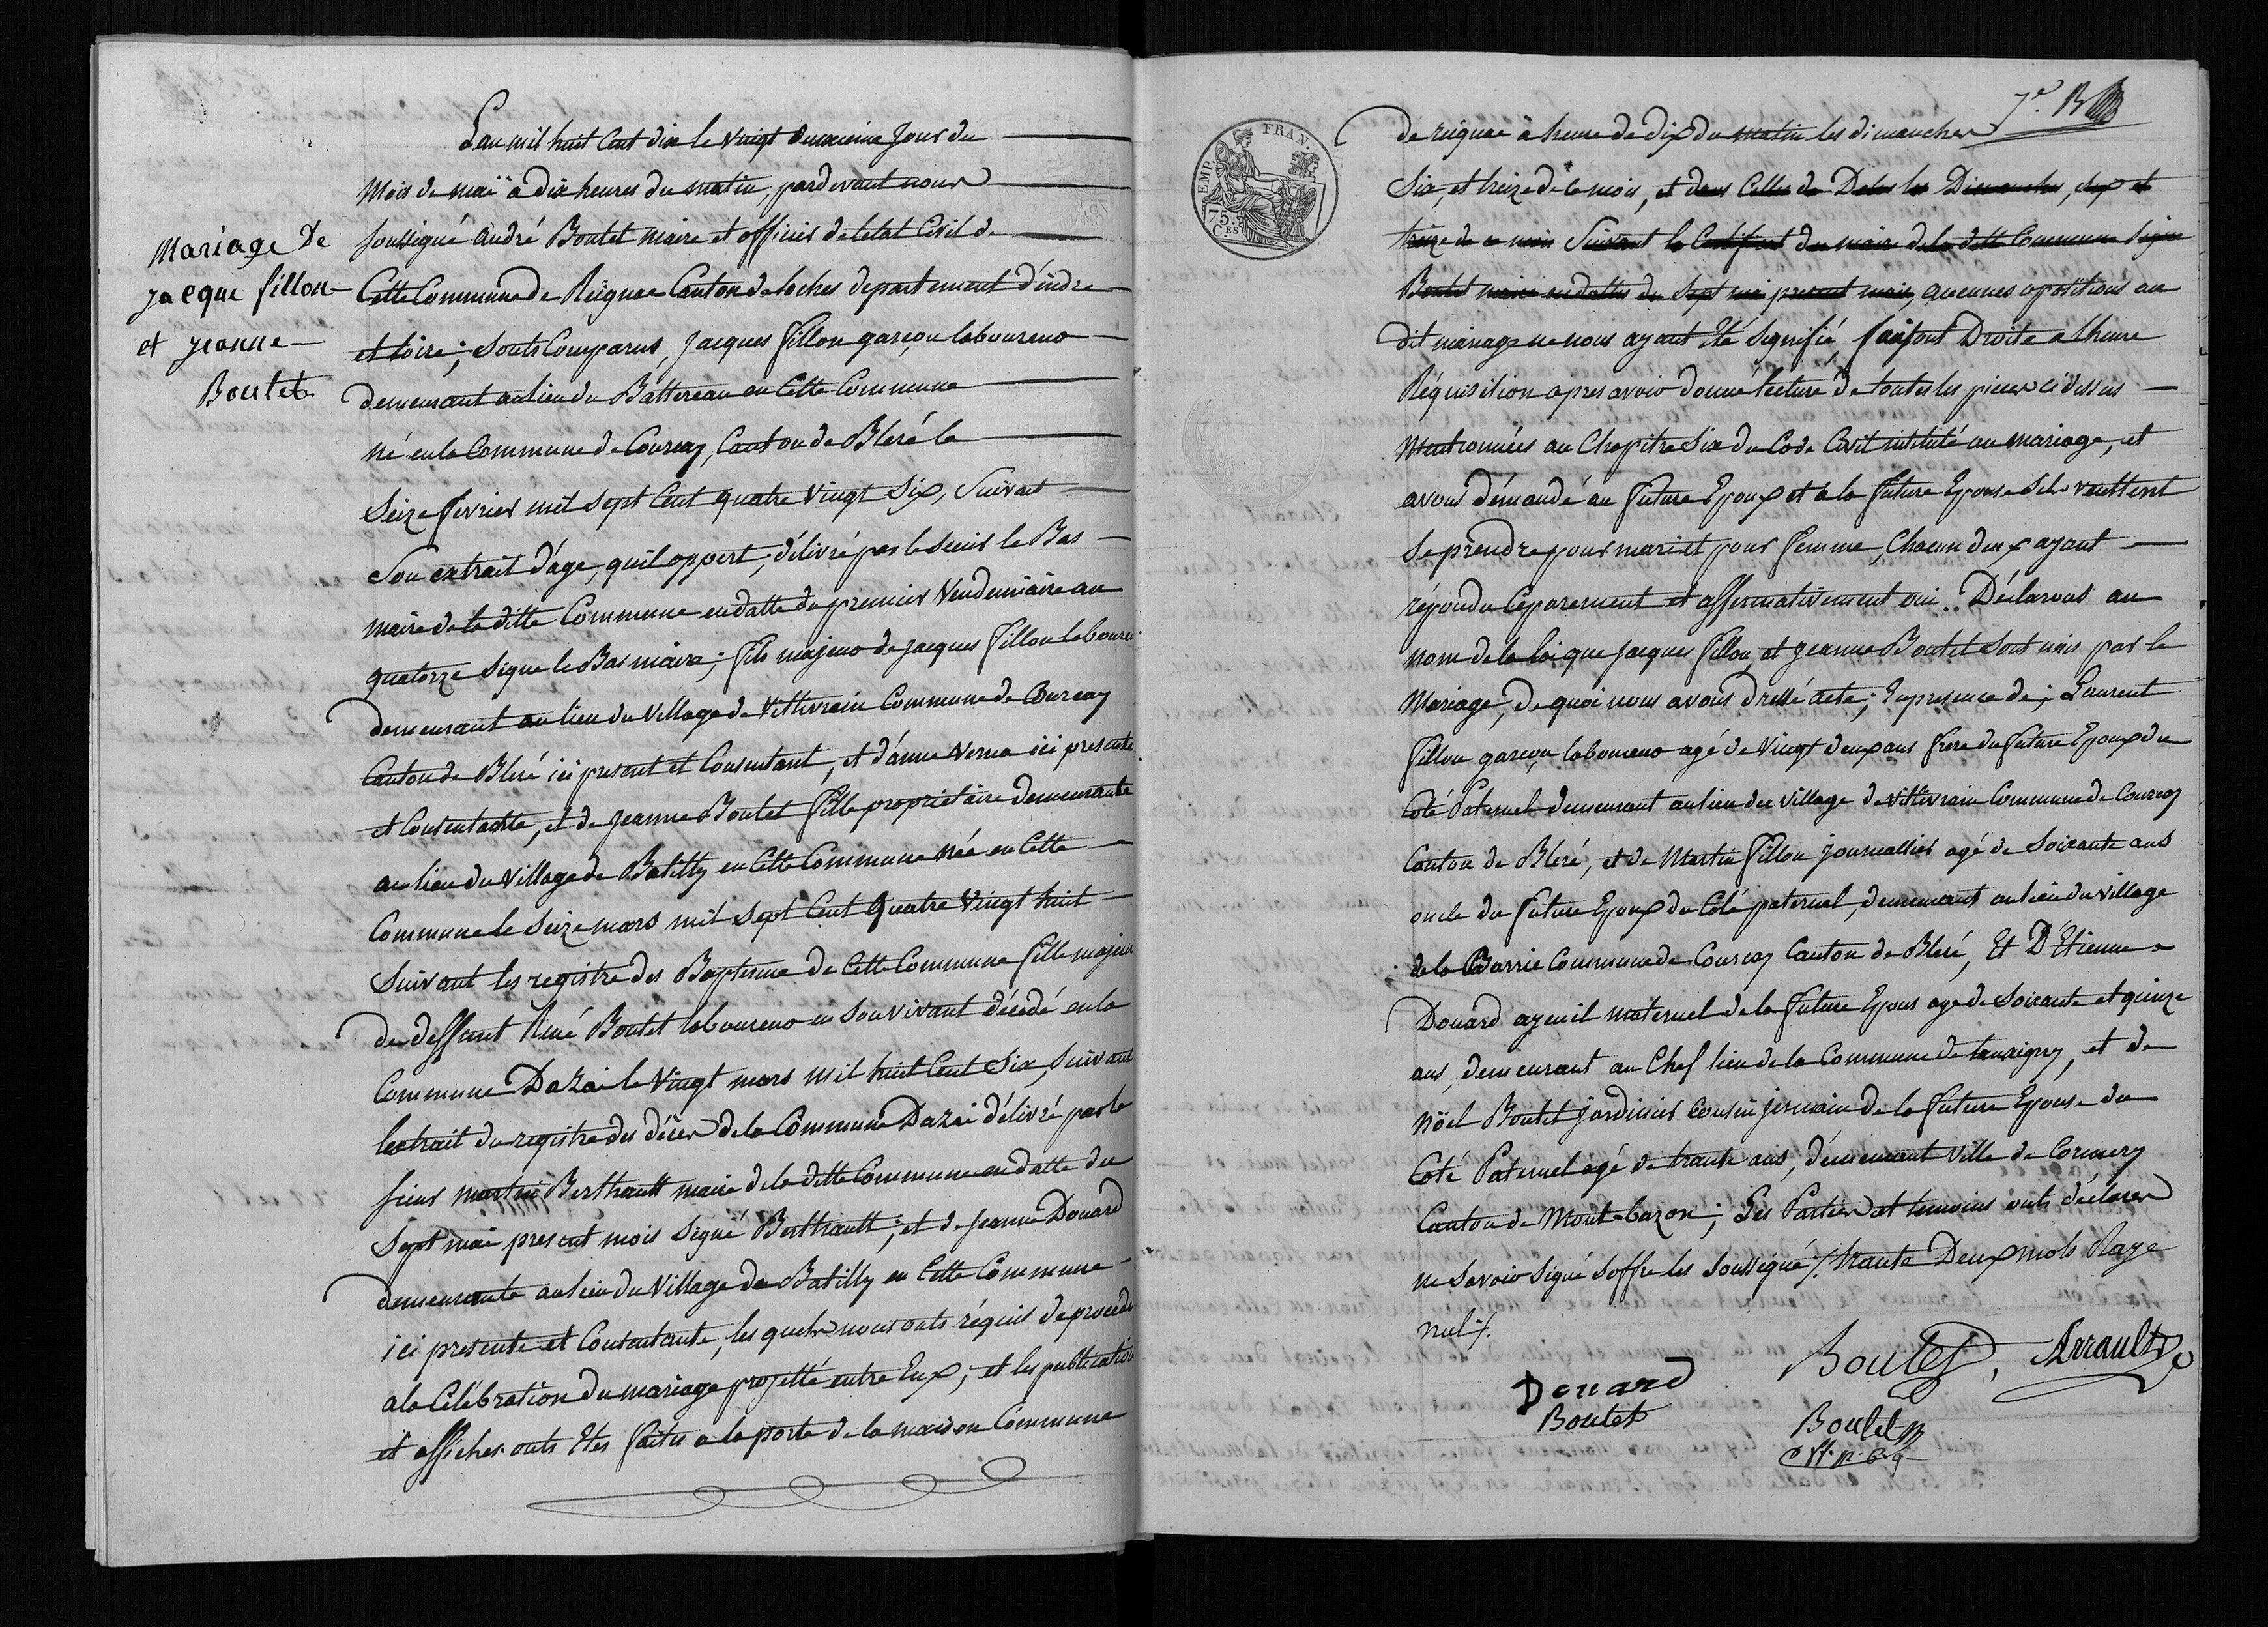 Mariage De
jacque fillon
et jeanne
Boutet
L'an mil huit Cent dix le vingt deuxieme Jour du
Mois de maï à dix heures du matin, pardevant nous
soussigné andré Boutet maire et officier de letat Civil de
Cette Commune de Reignac Canton de loches departement d'indre
et loire; sonts Comparus, Jacques fillon garçon laboureur
demeurant au lieu du Battereau en Cette Commune
né en la Commune de Courcay, Canton de Bleré le
Seize fevrier mil sept Cent quatre vingt Six, Suivant
Son extrait d'age, quil oppert, délivré par le sieur le Bas
maire de la ditte Commune en datte du premier Vendemiaire an
quatorze signe le Bas maire; fils majeur de jacques fillon laboureu
demeurant au lieu du Village de Commune de Courcay
Canton de Bleré ici present et Consentant, et d'anne ici presente
et Consentante, et de jeanne Boutet fille propriétaire demeurante
au lieu du village de Batilly en Cette Commune née en Cette
Commune le Seize mars mil sept Cent Quatre Vingt huit
Suivant les registre des Baptesme de Cette Commune fille majeur
de deffunt René Boutet laboureur en son vivant décédé en la
Commune Dazai le Vingt mars mil huit Cent Six, Suivant
lextrait du registre des décès de la Commune Dazai délivré par le
sieur martin Berthault maire de la ditte Commune en datte du
Sept mai present mois signé Berthault; et de jeanne Douard
demeurante au lieu du Village de Batilly en Cette Commune
ici presente et Consentante, les quels nous onts réquis de procedé
a la Célébration du mariage projetté entre Eux; et les publication
et affiches onts Etes faites a la porte de la maison Commune
7e. B
de reignac à heure de dix du matin les dimanches
Six, et treize de ce mois, et dans Celles de Dolus les Dimanches, six et
treize de ce mois Suivant le Certificat du maire de la ditte Commune Signe
Boutet maire en dattes du Sept mai present mois, aucunes opositions au
dit mariage ne nous ayant Eté signifié, faisont Droite a lheure
Réquisition apres avoir donné lecture de toutes les pieces ci dessus
Mentionnées au Chapitre Six du Code Civil intitulé au mariage, et
avons démandé au future Epoux et à la future Epouse Sils veullent
se prendre pour mari et pour femme, Chacun deux ayant
répondu Céparement et affermativement oui.. Déclarons au
nom de la loi que jacques fillon, et jeanne Boutet sont unis par le
Mariage, de quoi nous avons dressé acte; En presence de; Laurent
fillon garçon laboureur agé de Vingt deux ans frere du future Epoux du
Coté Paternel demeurant au lieu du village de Commune de Courcay
Canton de Bleré, et de Martin fillon journallier agé de Soixante ans
oncle du future Epoux du Coté paternel, demeurant au lieu du village
de la Barrie Commune de Courcay Canton de Bleré, Et D'Etienne
Douard ayeuil maternel de la future Epous age de Soixante et quinze
ans, demeurant au Chef lieu de la Commune de tauxigny, et de
Nöel Boutet jardinier Cousin jermain de la future Epouse du
Coté Paternel agé de trante ans, démeurant ville de Cormery
Canton de Montbazon; Les Parties et temoins onts déclarer
ne Savoir Signé Soffre les Soussigné ./. trante Deux mots Raye
nul ./.
Denard
Boutet
Boutet
Arrault
Boutet
EMP. FRAN.
75.
CES